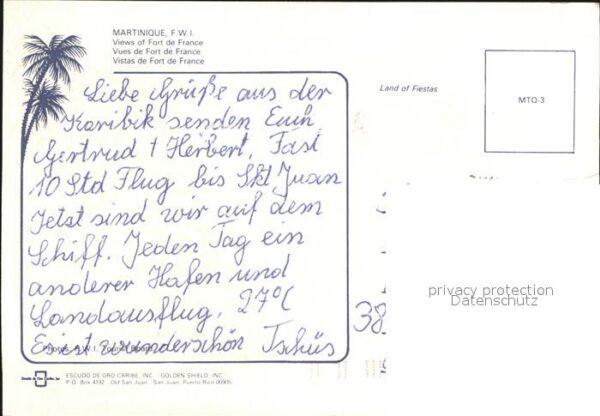 MARTINIQUE, F.W.I.
Views of Fort de France
Vues de Fort de France
Vistas de Fort de France
Land of Fiestas
MTQ-3
Liebe Grüße aus der
Karibik senden Euch
Gertrud + Herbert, Fast
10 Std Flug bis Skt Juan
Jetzt sind wir auf dem
Schiff. Jeden Tag ein
anderer Hafen und
Landausflug. 27°C
Es ist wunderschön Tschüs
38
privacy protection
Datenschutz
ESCUDO DE ORO CARIBE, INC. GOLDEN SHIELD, INC.
P.O. Box 4192 Old San Juan San Juan, Puerto Rico 00905